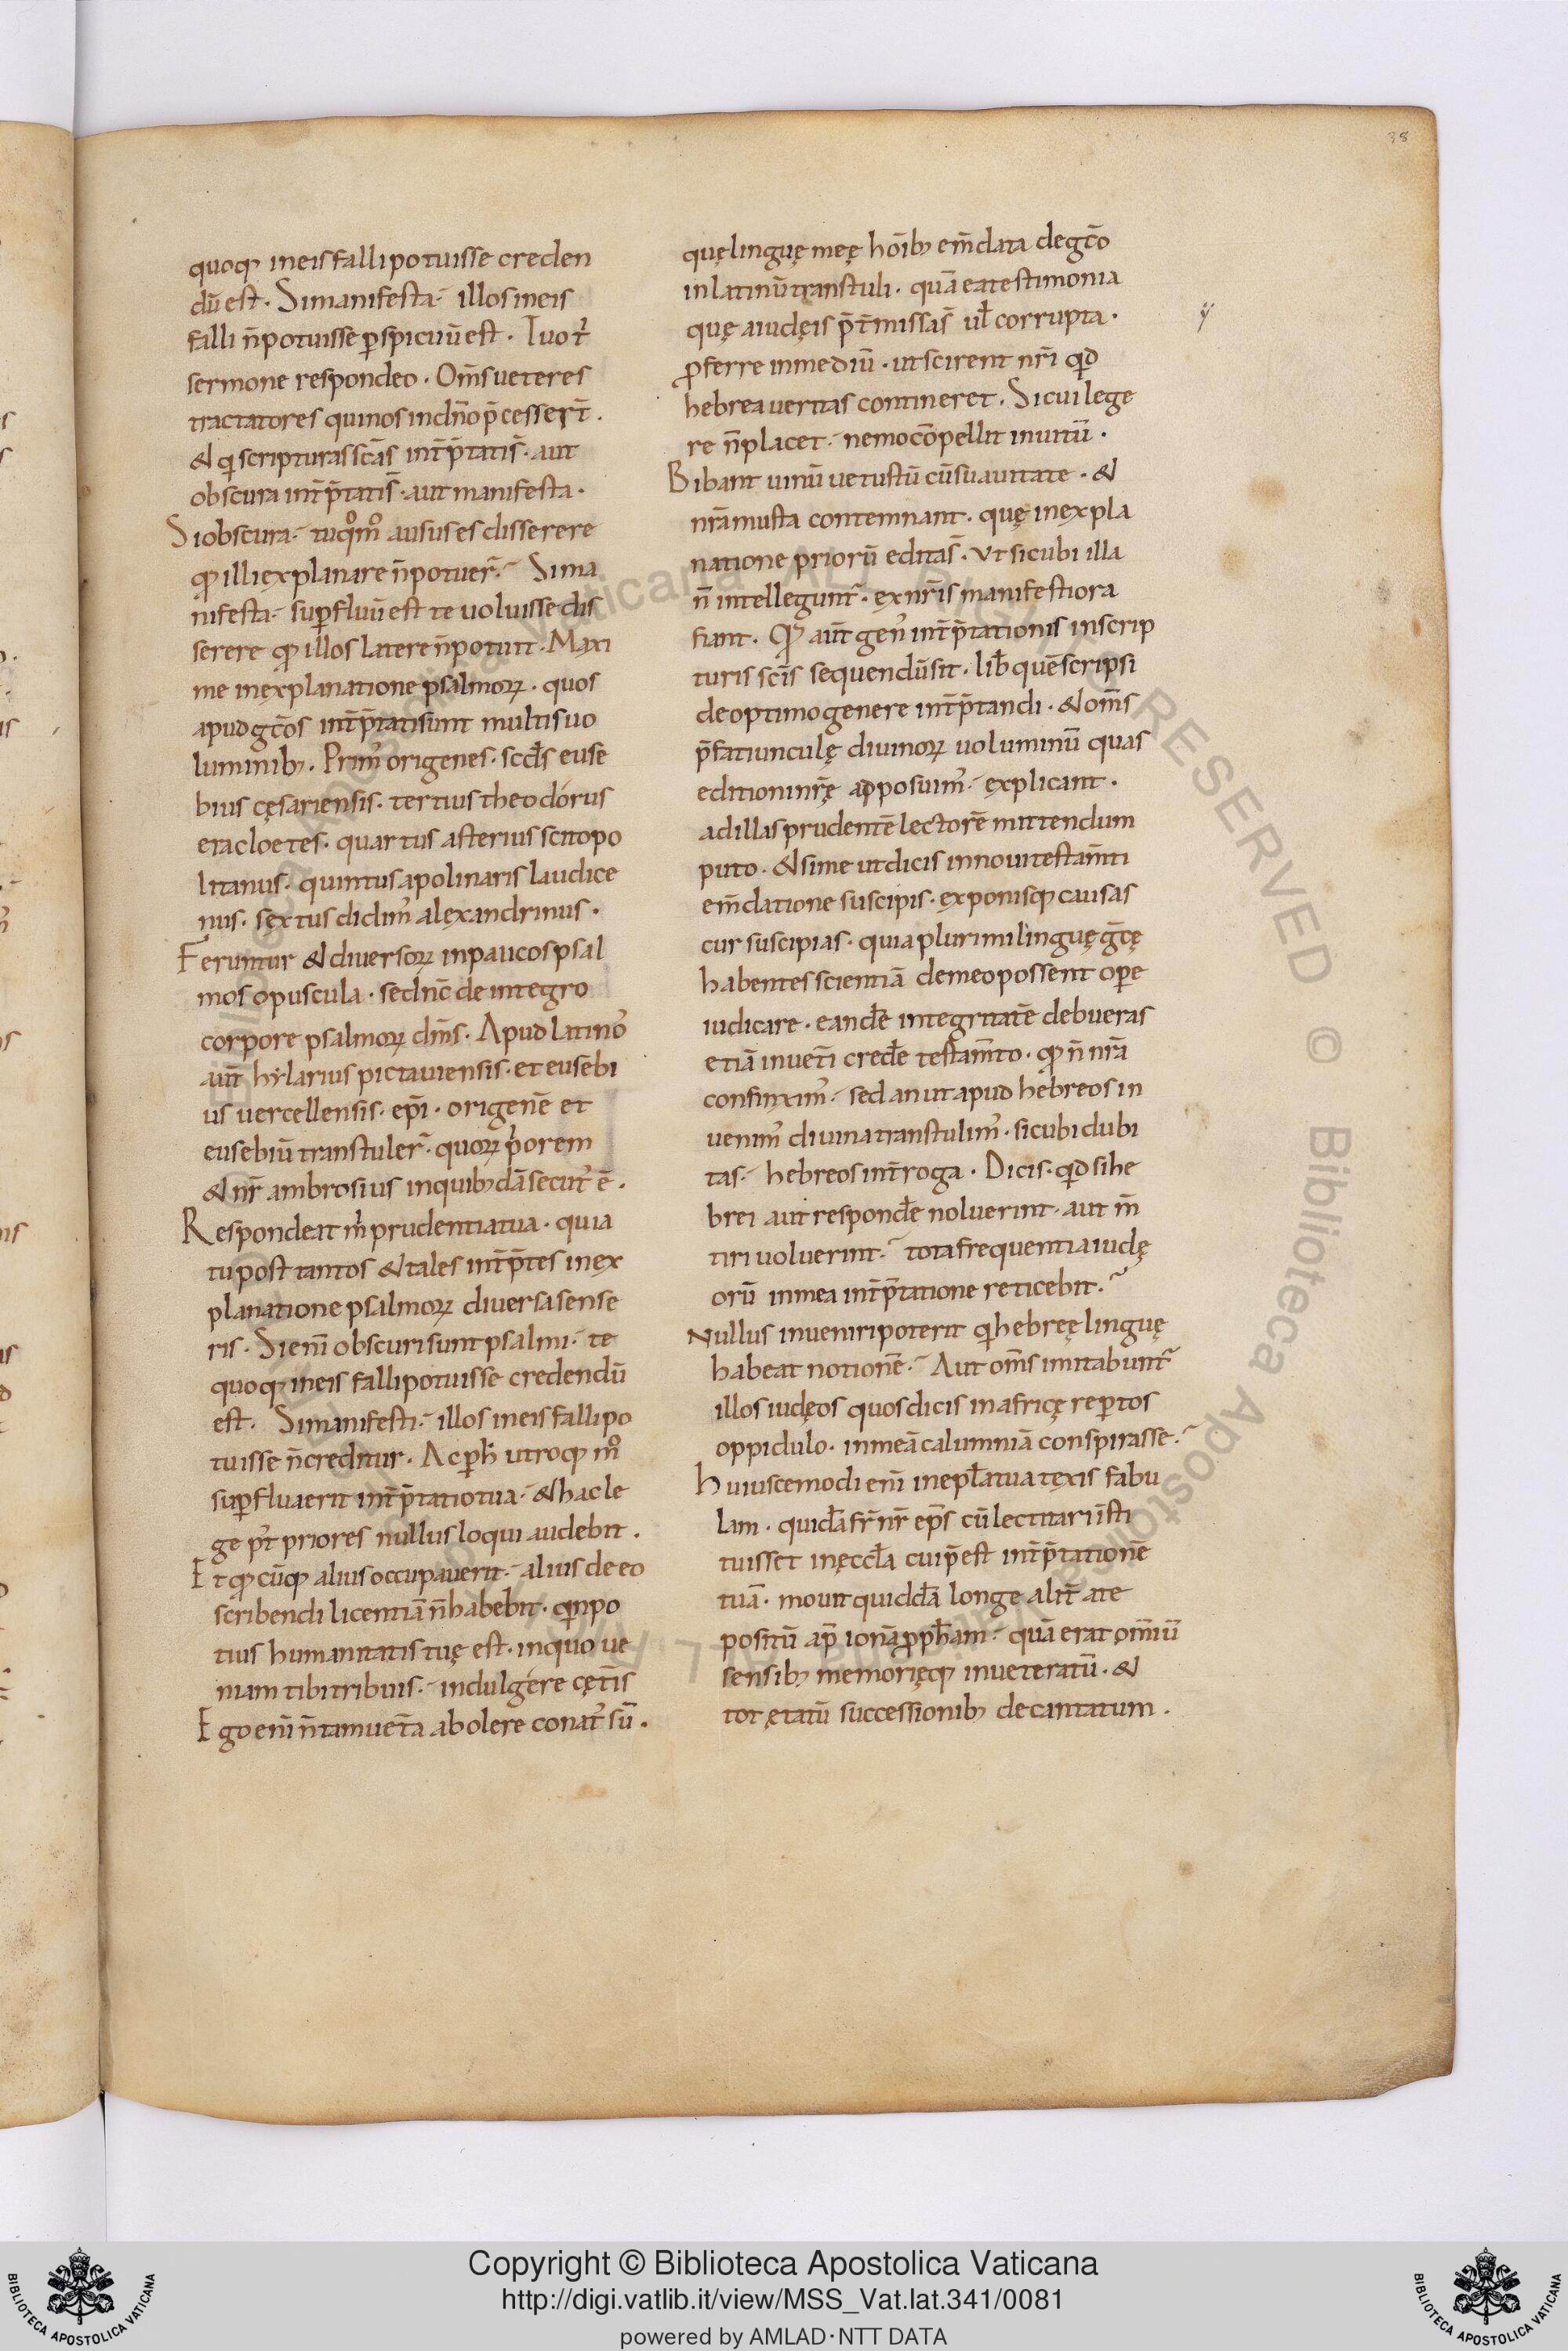 38
quoq; ineis falli potuisse creden
dū est. Simanifesta. illos ineis
falli n̄ potuisse ꝑspicuū est. Tuo t̄
sermone respondeo. Om̄s ueteres
tractatores quinos indn̄o p̄cesser̄t.
& qui scripturas sc̄as int̄p̄tatis̄. aut
obscura int̄p̄tatis̄. aut manifesta.
Si obscura. tu ausus es disserere
illi explanare n̄ potuer̄. Sima
nifesta. suꝑfluū est te uoluisse dis
serere illos latere n̄ potuit. Maxi
me inexplanatione psalmoꝝ. quos
apud gc̄os int̄p̄tati sunt multis uo
luminib;. Prim᾿ origenes. scd̄s euse
bius cęsariensis. tertius theodorus
eracloetes. quartus asterius scitopo
litanus. quintus apolinaris laudice
nus. sextus didim᾿ alexandrinus.
Feruntur & diuersoꝝ inpaucos psal
mos opuscula. sed nc̄ de integro
corpore psalmoꝝ dm̄s. Apud latino᾿
aut̄ hylarius pictauiensis. et eusebi
us uercellensis. ep̄i. origenē et
eusebiū transtuler̄. quoꝝ p̄orem
& nr̄ ambrosius inquib;dā secut᾿ ē.
Respondeat m̄ prudentia tua. quia
tu post tantos & tales int̄p̄tes inex
planatione psalmoꝝ diuersa sense
ris. Si eni᾿ obscuri sunt psalmi. te
quoq; ineis falli potuisse credendū
est. Simanifesti. illos ineis falli po
tuisse n̄ creditur. Ac ꝑh̄ utroq; m̊
suꝑflua erit int̄p̄tatio tua. & hac le
ge p᾿t priores nullus loqui audebit.
Et cūq; alius occupauerit. alius de eo
scribendi licentiā n̄ habebit. quin po
tius humanitatis tuę est. inquo ue
niam tibi tribuis. indulgere cęt̄is
Ego eni᾿ n̄ tam uet̄a abolere conat᾿ sū.
quę linguę meę hoīb; em̄data degc̄o
inlatinū transtuli. quā ea testimonia
quę aiudęis p̄t̄missas̄ ul̄ corrupta.
ꝓferre inmediū. ut scirent nr̄i qd
hebrea ueritas contineret. Si cui lege
re n̄ placet. nemo cōpellit inuitū.
Bibant uinū uetustū cū suauitate. &
nr̄a musta contemnant. quę inexpla
natione priorū editas̄. Ut sicubi illa
n̄ intellegunt᾿. ex nr̄is manifestiora
fiant. aut̄ gen᾿ int̄p̄tationis inscrip
turis sc̄is sequendū sit. lib̄ quē scripsi
de optimo genere int̄p̄tandi. & om̄s
p̄fatiunculę diuinoꝝ uoluminū quas
editioni nr̄ę apposuim᾿. explicant.
ad illas prudentē lectorē mittendum
puto. & sime ut dicis innoui testam̄ti
em̄datione suscipis. exponisq; causas
cur suscipias. quia plurimi linguę gc̄ę
habentes scientiā demeo possent oꝑe
iudicare. eandē integritatē debueras
etiā inuet̄i credē testam̄to. n̄ nr̄a
confinxim᾿. sed an ut apud hebreos in
uenim᾿ diuina transtulim᾿. sicubi dubi
tas. hebreos int̄roga. Dicis. qd si he
brei aut respondē noluerint. aut m̄
tiri uoluerint. tota frequentia iudę
orū inmea int̄p̄tatione reticebit.
Nullus inueniri poterit qui hebreę linguę
habeat notionē. Aut om̄s imitabunt᾿
illos iudęos quos dicis inafricę reꝑtos
oppidulo. inmeā calumniā conspirasse.
Huiuscemodi eni᾿ inepl̄a tua texis fabu
lam. quidā fr̄ nr̄ ep̄s cū lectitari īsti
tuisset inęccl̄a cui p̄est int̄p̄tationē
tuā. mouit quiddā longe alit̄ a te
positū ap̄ ionā ꝓph̄am. quā erat omiū
sensib; memorięq; inueteratū. &
tot ętatū successionib; decantatum.
© Biblioteca Apostolica Vaticana ALL RIGHTS RESERVED
BIBLIOTECA APOSTOLICA VATICANA
Copyright © Biblioteca Apostolica Vaticana
http://digi.vatlib.it/view/MSS_Vat.lat.341/0081
powered by AMLAD·NTT DATA
BIBLIOTECA APOSTOLICA VATICANA